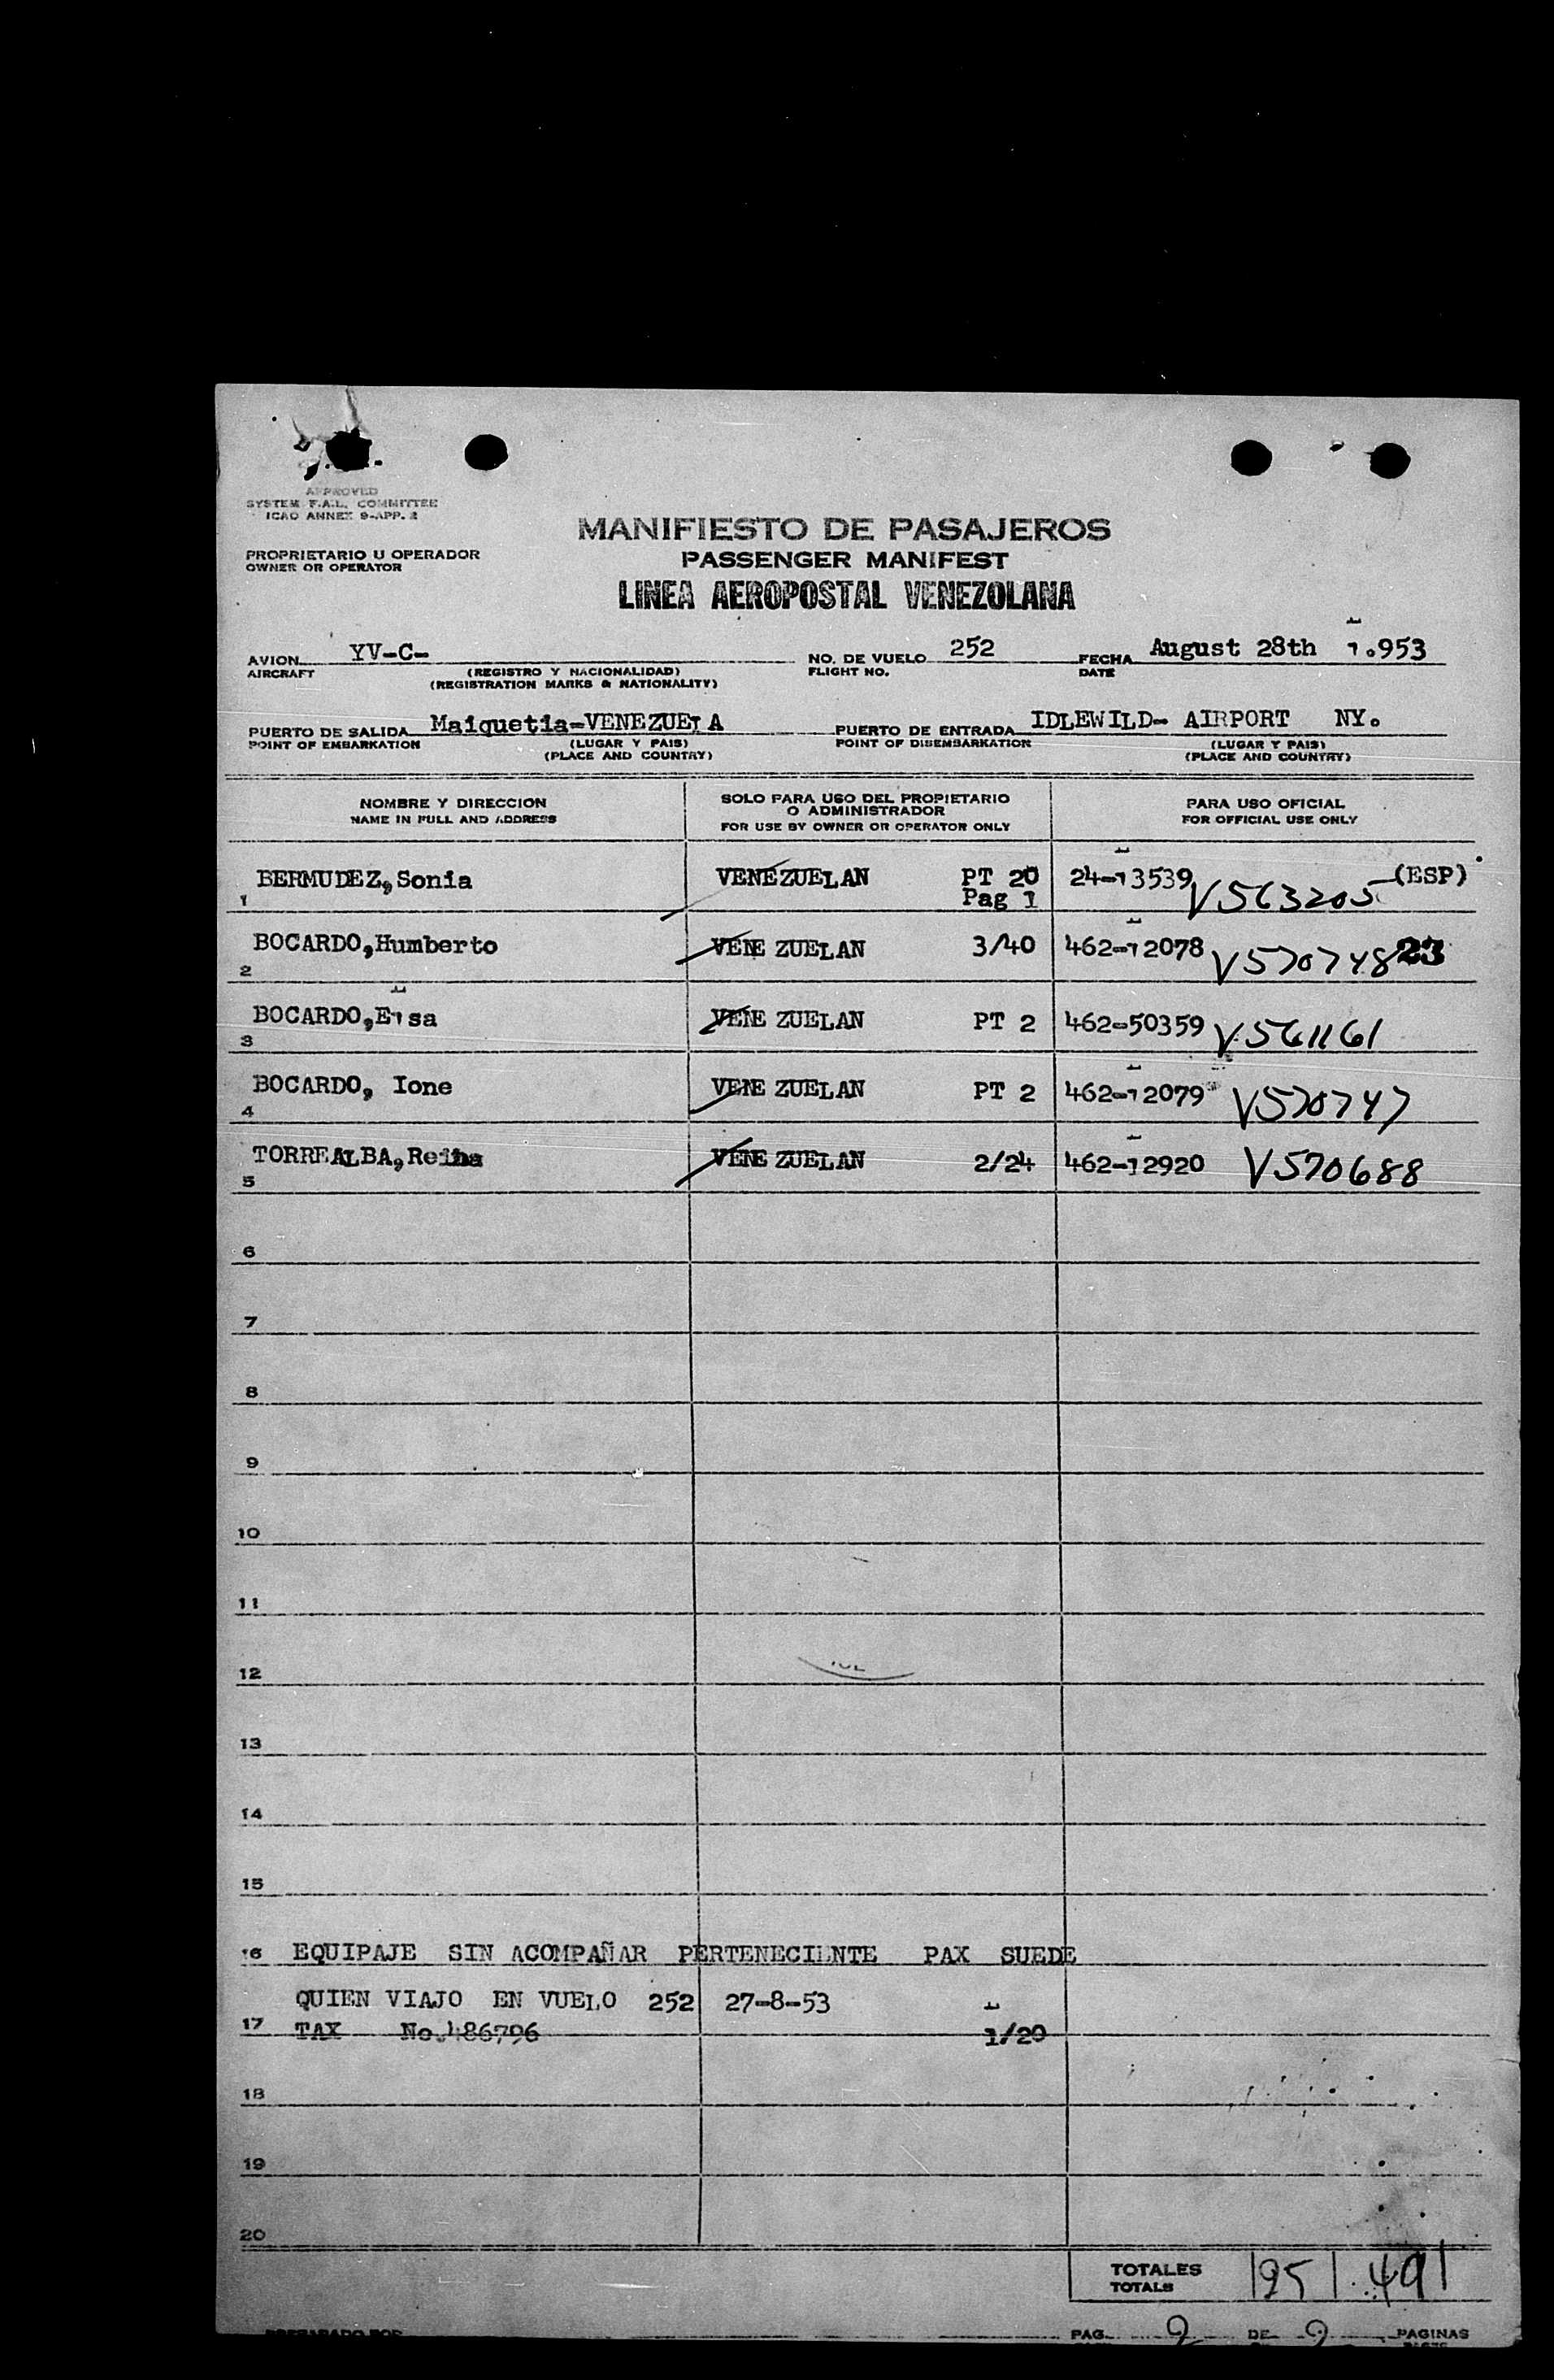 APPROVED
SYSTEM F.A.L. COMMITTEE
ICAO ANNEX 9-APP. 2
MANIFIESTO DE PASAJEROS
PROPRIETARIO U OPERADOR
OWNER OR OPERATOR
PASSENGER MANIFEST
LINEA AEROPOSTAL VENEZOLANA
AVION YV-C- NO. DE VUELO 252 FECHA August 28th 1.953
AIRCRAFT (REGISTRO Y NACIONALIDAD) FLIGHT NO. DATE
(REGISTRATION MARKS & NATIONALITY)
PUERTO DE SALIDA Maiquetia-VENEZUELA PUERTO DE ENTRADA IDLEWILD- AIRPORT NY.
POINT OF EMBARKATION (LUGAR Y PAIS) POINT OF DISEMBARKATION (LUGAR Y PAIS)
(PLACE AND COUNTRY) (PLACE AND COUNTRY)
NOMBRE Y DIRECCION SOLO PARA USO DEL PROPIETARIO O ADMINISTRADOR PARA USO OFICIAL
NAME IN FULL AND ADDRESS FOR USE BY OWNER OR OPERATOR ONLY FOR OFFICIAL USE ONLY
1 BERMUDEZ,Sonia VENEZUELAN PT 20 24-13539 V563205 (ESP)
Pag 1
2 BOCARDO,Humberto VENEZUELAN 3/40 462-12078 V570748 23
3 BOCARDO,Elsa VENEZUELAN PT 2 462-50359 V561161
4 BOCARDO, Ione VENEZUELAN PT 2 462-12079 V570747
5 TORREALBA,Reina VENEZUELAN 2/24 462-12920 V570688
6
7
8
9
10
11
12
13
14
15
16 EQUIPAJE SIN ACOMPAÑAR PERTENECIENTE PAX SUEDE
QUIEN VIAJO EN VUELO 252 27-8-53
17 TAX No.486796 1/20
18
19
20
TOTALES
TOTALS
PAG. 2 DE 2 PAGINAS